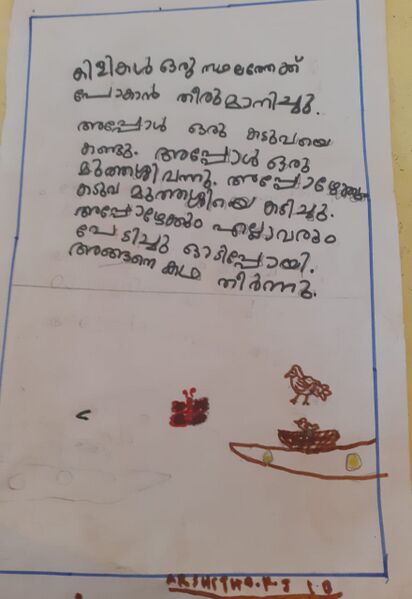 കിളികൾ ഒരു സ്ഥലത്തേക്ക്
പോകാൻ തീരുമാനിച്ചു.
അപ്പോൾ ഒരു കടുവയെ
കണ്ടു. അപ്പോൾ ഒരു
മുത്തശ്ശി വന്നു. അപ്പോഴേക്കും
കടുവ മുത്തശ്ശിയെ കടിച്ചു.
അപ്പോഴേക്കും എല്ലാവരും
പേടിച്ചു ഓടിപ്പോയി.
അങ്ങനെ കഥ തീർന്നു.
AKSHITHA.K.S 1.B